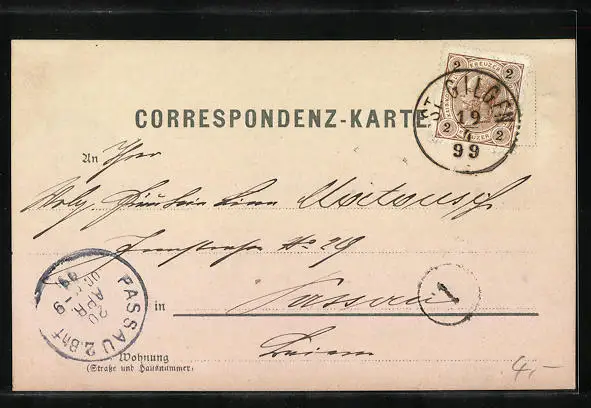 2 KREUZER 2
2 KREUZER 2
ST. GILGEN
19
4
99
CORRESPONDENZ-KARTE
An Ihrer
Wolg. Fräulein
Innstrasse No 29
in Passau
Baiern
Wohnung
(Straße und Hausnummer)
PASSAU 2.Bhf
20
APR
8-9
99
1
4,-